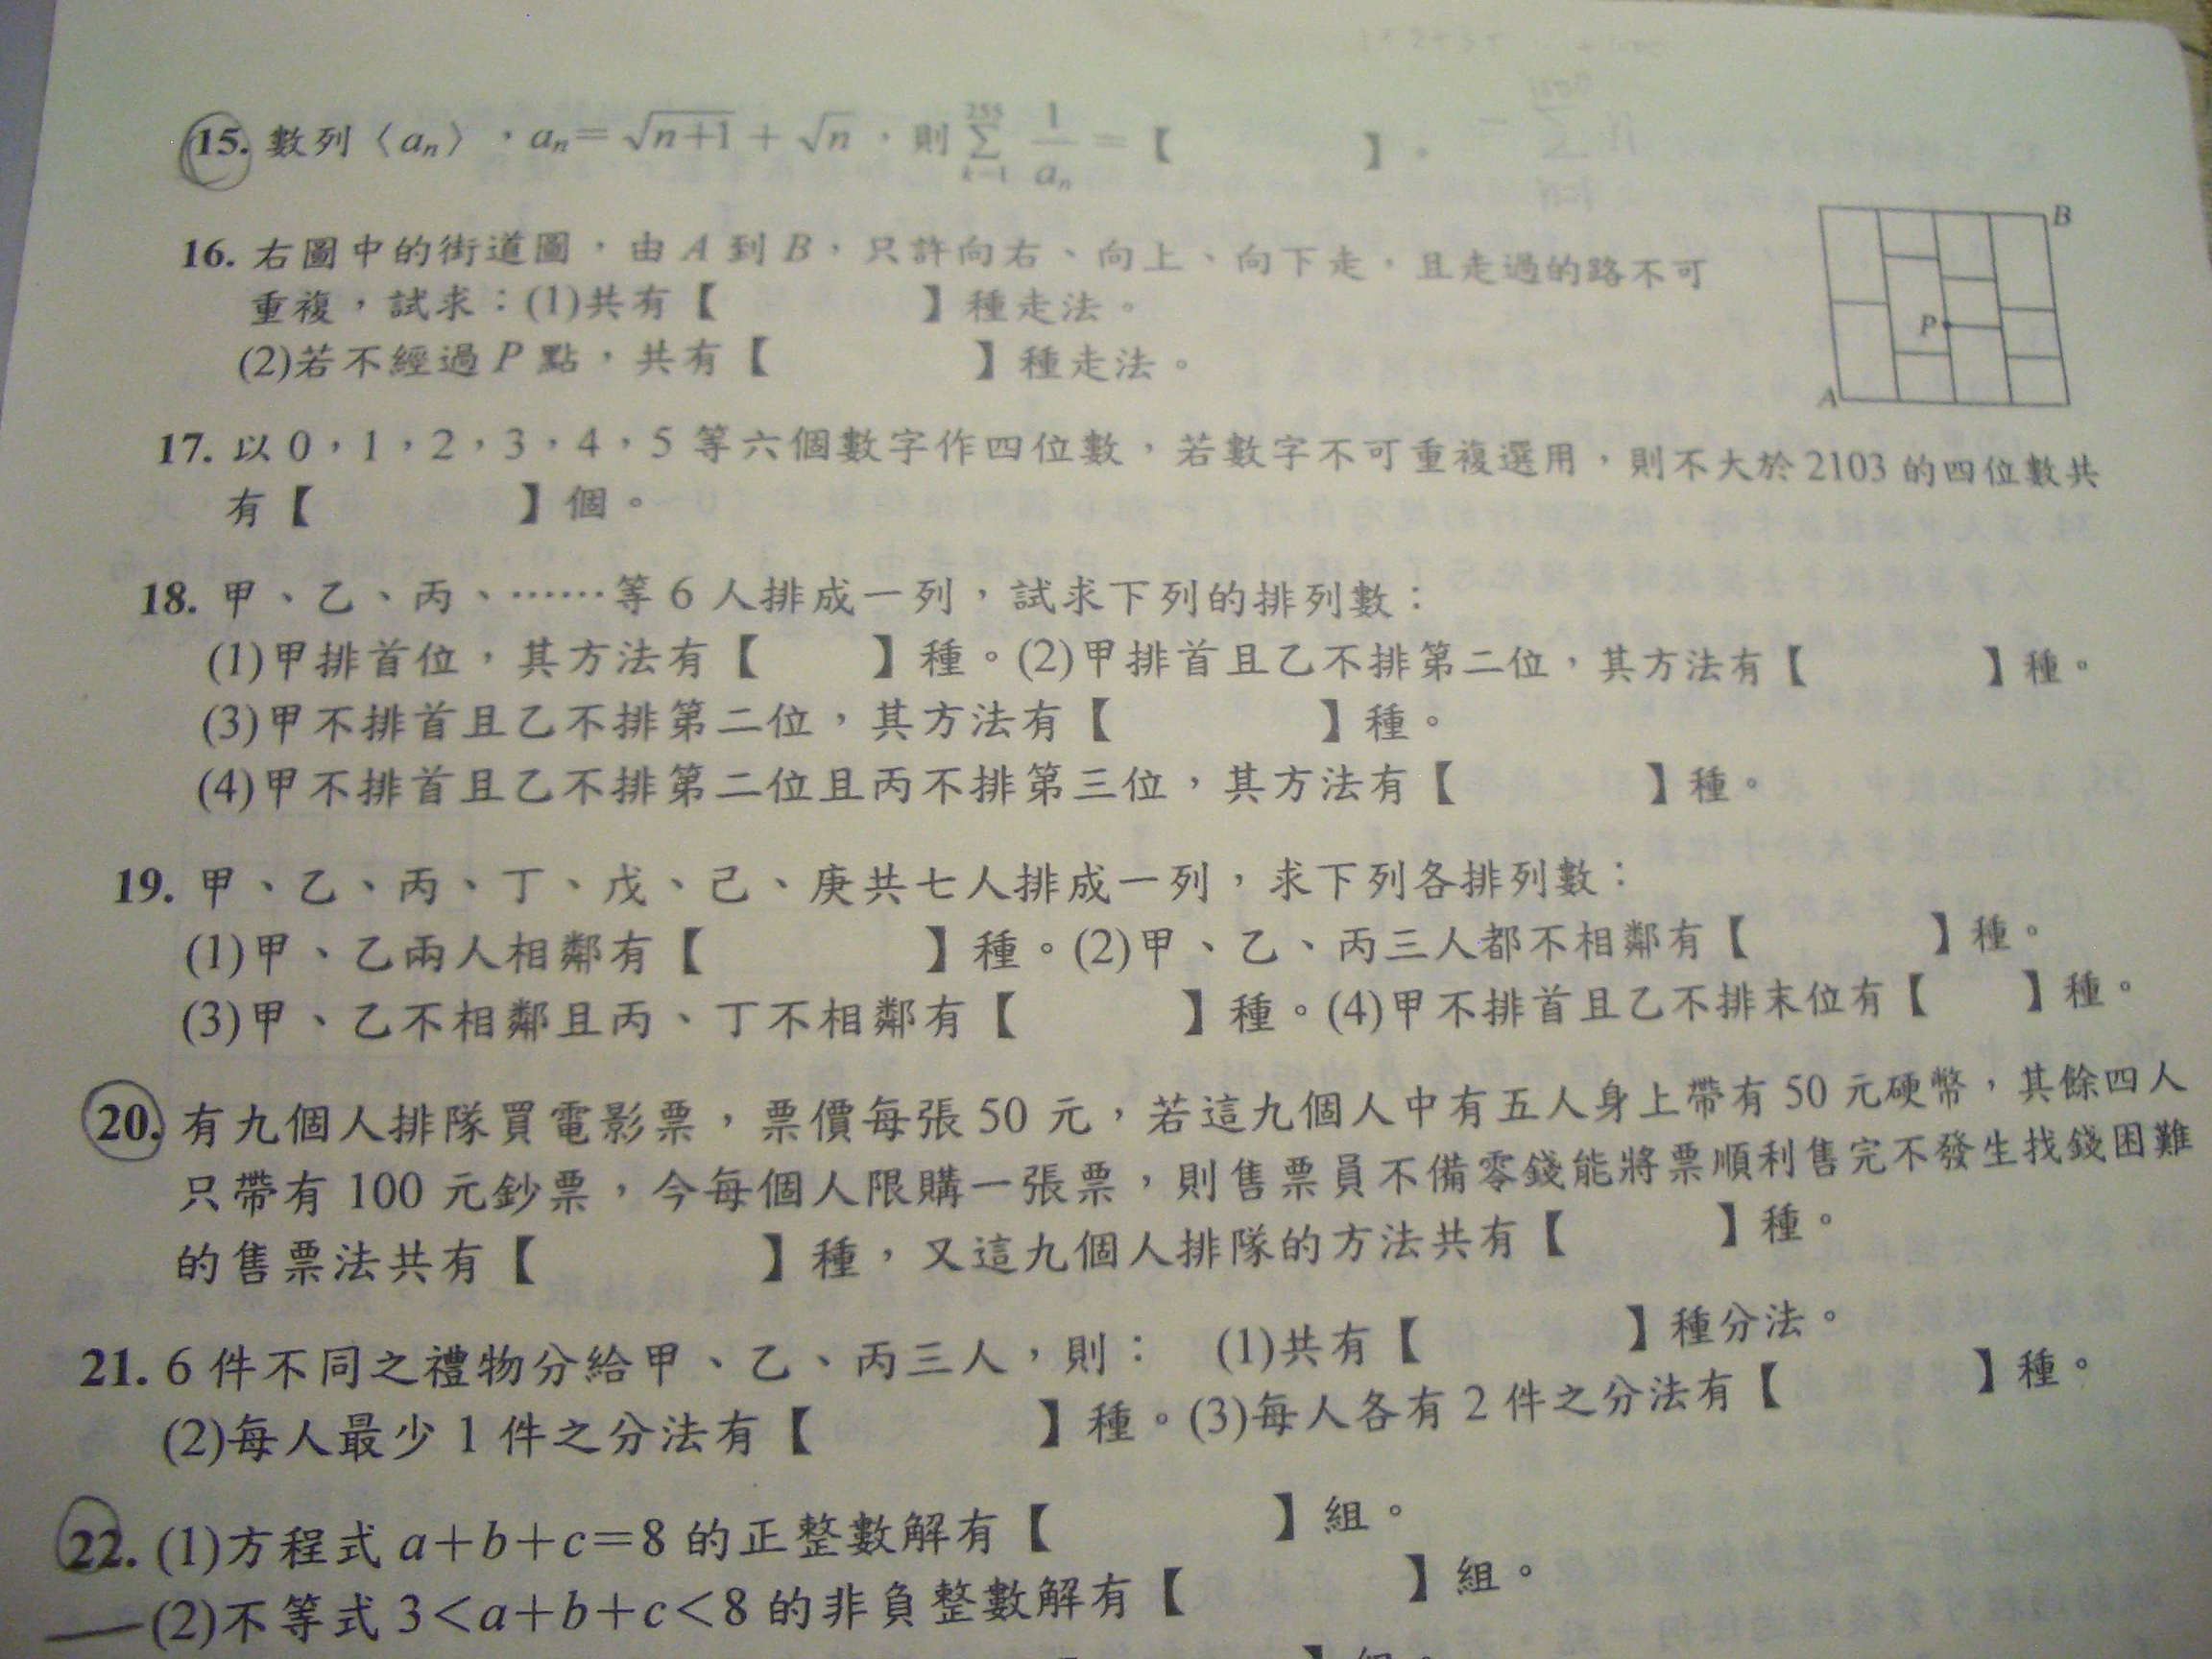 15. 數列〈aₙ〉，aₙ=√(n+1) + √n，則 255 Σ k=1 1/aₙ =【 】。
16. 右圖中的街道圖，由 A 到 B，只許向右、向上、向下走，且走過的路不可
重複，試求：(1)共有【 】種走法。
(2)若不經過 P 點，共有【 】種走法。
B
P
A
17. 以 0，1，2，3，4，5 等六個數字作四位數，若數字不可重複選用，則不大於 2103 的四位數共
有【 】個。
18. 甲、乙、丙、……等 6 人排成一列，試求下列的排列數：
(1)甲排首位，其方法有【 】種。(2)甲排首且乙不排第二位，其方法有【 】種。
(3)甲不排首且乙不排第二位，其方法有【 】種。
(4)甲不排首且乙不排第二位且丙不排第三位，其方法有【 】種。
19. 甲、乙、丙、丁、戊、己、庚共七人排成一列，求下列各排列數：
(1)甲、乙兩人相鄰有【 】種。(2)甲、乙、丙三人都不相鄰有【 】種。
(3)甲、乙不相鄰且丙、丁不相鄰有【 】種。(4)甲不排首且乙不排末位有【 】種。
20. 有九個人排隊買電影票，票價每張 50 元，若這九個人中有五人身上帶有 50 元硬幣，其餘四人
只帶有 100 元鈔票，今每個人限購一張票，則售票員不備零錢能將票順利售完不發生找錢困難
的售票法共有【 】種，又這九個人排隊的方法共有【 】種。
21. 6 件不同之禮物分給甲、乙、丙三人，則： (1)共有【 】種分法。
(2)每人最少 1 件之分法有【 】種。(3)每人各有 2 件之分法有【 】種。
22. (1)方程式 a+b+c=8 的正整數解有【 】組。
(2)不等式 3<a+b+c<8 的非負整數解有【 】組。